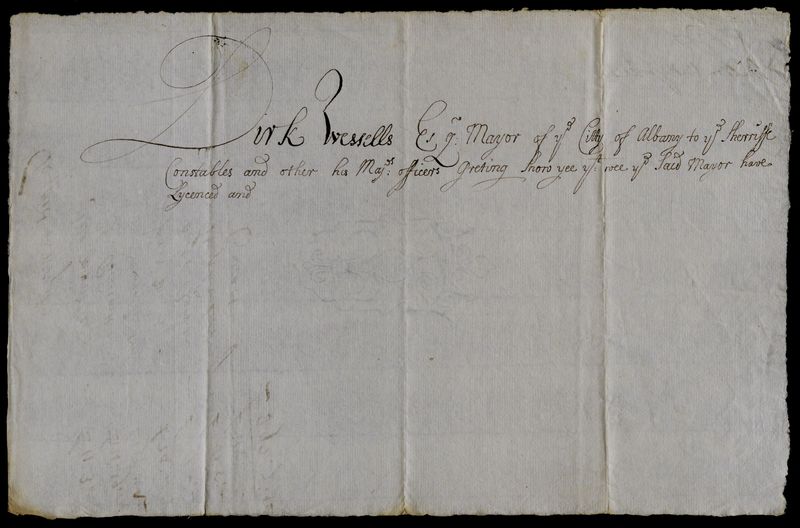 Dirk Wessells Esqr: Mayor of ye Citty of Albany to ye Sherriffe
Constables and other his Majs: officers Greting Know yee yt wee ye Said Mayor have
Lycenced and